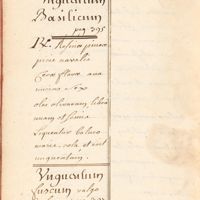 Unguentum
Basilicum
pag 395
℞. Resinæ pineæ
picis navalis
Ceræ flavæ ana
uncias sex
olei olivarum libra
unam et semis
liquentur balneo
mariæ, cola et erit
unguentum.
Unguentum
fuscum vulgo